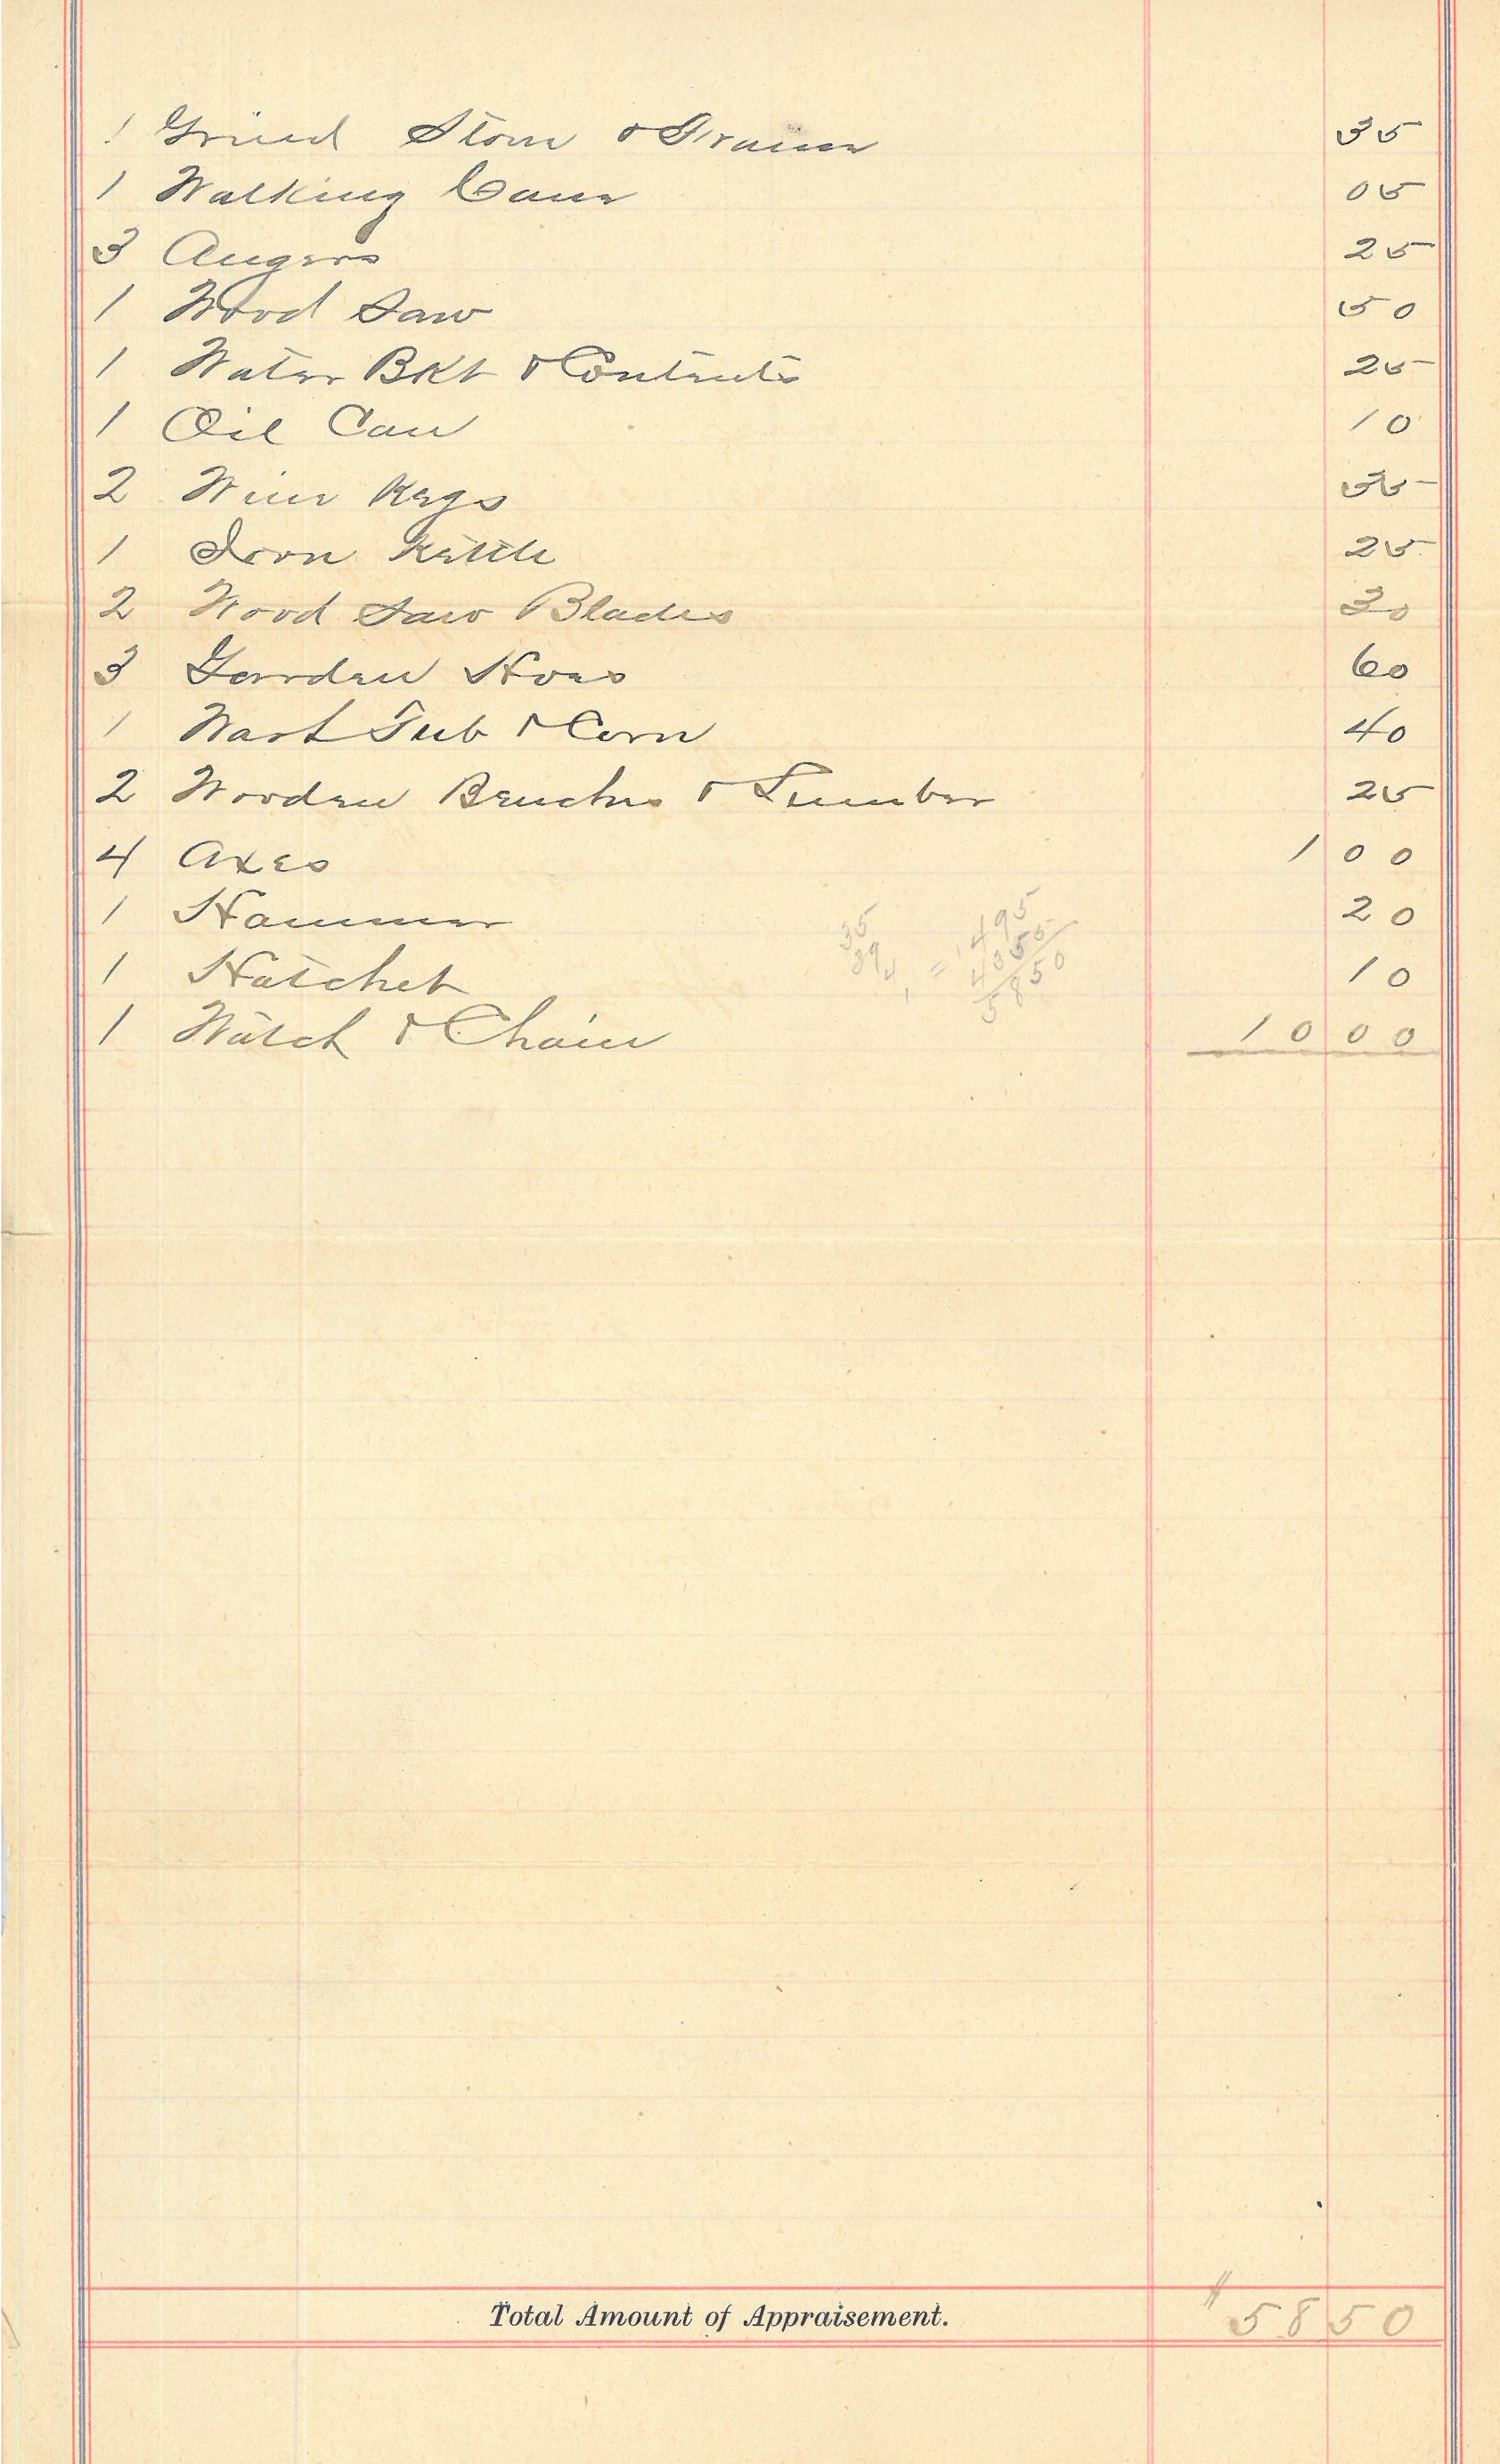 1 Grind Stone & Frame 35
1 Walking Cane 05
3 Augers 25
1 Wood Saw 50
1 Water Bkt & Contents 25
1 Oil Can 10
2 Wine Kegs 35
1 Iron Kettle 25
2 Wood Saw Blades 30
3 Garden Hoes 60
1 Wast Tub & Corn 40
2 Wooden Benches & Lumber 25
4 Axes 1 00
1 Hammer 20
35 1495
1 Hatchet 10
394 = 4355
5850
1 Watch & Chain 10 00
Total Amount of Appraisement. $ 58 50